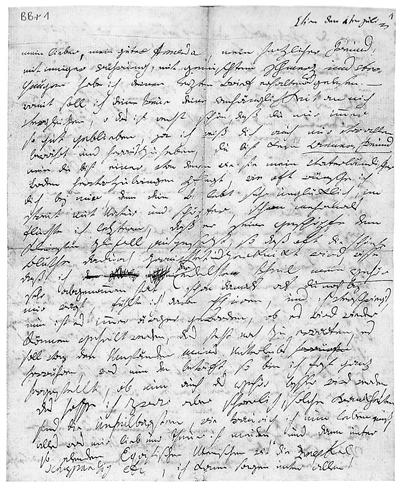 BBr 1
Wien den 1ten juli
mein lieber, mein guter Amenda, mein herzlicher Freund,
mit inniger rührung, mit gemischtem schmerz und Ver-
gnügen habe ich deinen lezten brief erhalten gelesen —
womit soll ich deine treue deine anhänglichkeit an mich
vergleichen, o das ist recht schön, daß du mir immer
so gut geblieben, ja ich weiß dich auch mir vor allen
bewährt und herauszuheben, du bist kein wiener Freund
nein du bist einer von denen wie sie mein vaterländischer
boden hervorzubringen pflegt, wie oft wünsche ich
dich bey mir, denn dein B lebt sehr unglücklich, im
streit mit Natur und schöpfer, schon mehrmals
fluchte ich leztern, daß er seine geschöpfe dem
kleinsten Zufall ausgesezt, so daß oft die schönste
blüthe dadurch zernichtet und zerknickt wird, wisse
daß mir der edelste theil mein gehör
sehr abgenommen hat, schon damals als du noch bey
mir warst, fühlte ich davon spuren, und ich verschwieg's
nun ist es immer ärger geworden, ob es wird wieder
können geheilt werden, das steht noch zu erwarten, es
soll von den Umständen meines Unterleibs
herrühren, was nun den betrifft, so bin ich fast ganz
hergestellt, ob nun auch das gehör besser werden wird
das hoffe ich zwar aber schwerlich, solche krankheiten
sind die unheilbarsten, wie traurig ich nun leben muß
alles was mir lieb und theuer ist meiden und dann unter
so elenden Egoistischen Menschen wie die Zmeskal
Schuppanzigh etc, ich kann sagen unter allen